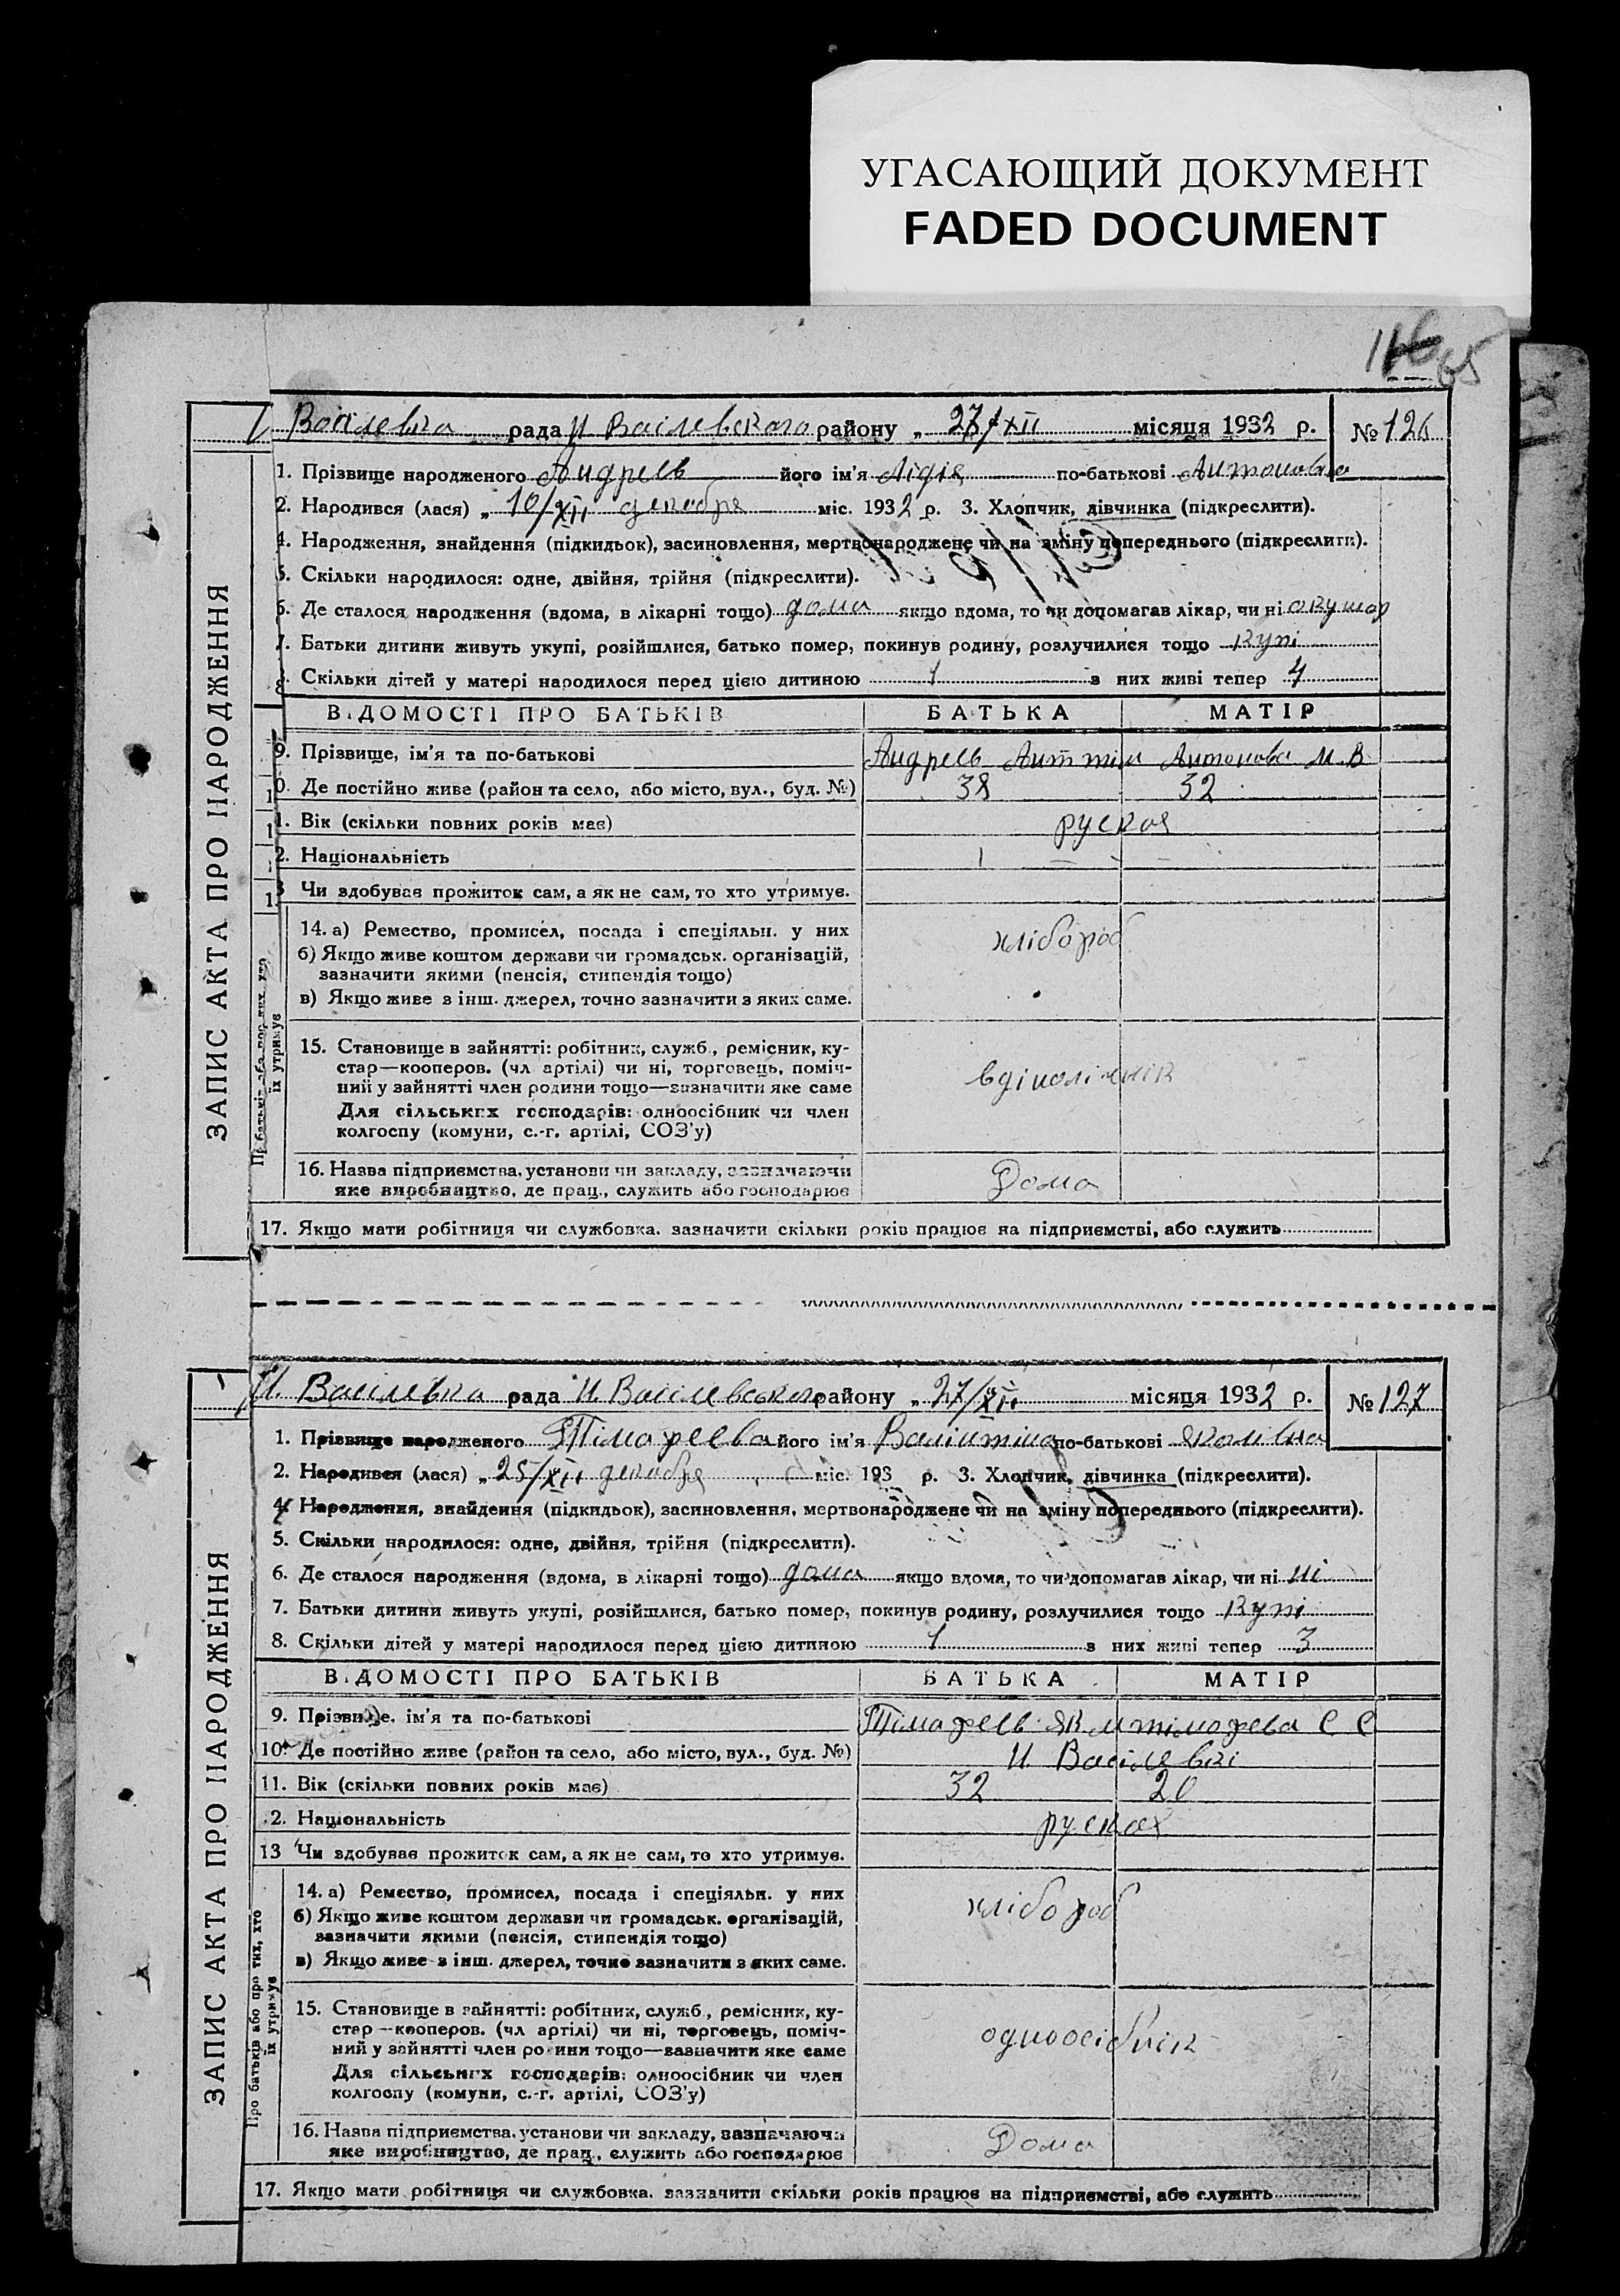 УГАСАЮЩИЙ ДОКУМЕНТ
FADED DOCUMENT
65
ЗАПИС АКТА ПРО НАРОДЖЕННЯ
Васілевка рада Н Васілевского району „ 27/XII місяця 1932 р. № 126
1. Прізвище народженого Андреев його ім'я Лідія по-батькові Антоновна
2. Народився (лася) „ 10/XII декабря міс. 1932 р. 3. Хлопчик, дівчинка (підкреслити).
4. Народження, знайдення (підкидьок), засиновлення, мертвонароджене чи на зміну попереднього (підкреслити).
5. Скільки народилося: одне, двійня, трійня (підкреслити).
6. Де сталося народження (вдома, в лікарні тощо) дома якщо вдома, то чи допомагав лікар, чи ні окушор
7. Батьки дитини живуть укупі, розійшлися, батько помер, покинув родину, розлучилися тощо купі
8. Скільки дітей у матері народилося перед цією дитиною 1 з них живі тепер 4
ВІДОМОСТІ ПРО БАТЬКІВ БАТЬКА МАТІР
9. Прізвище, ім'я та по-батькові Андреев Антон Антонова М. В
10. Де постійно живе (район та село, або місто, вул., буд. №) 38 32
11. Вік (скільки повних років має) руская
12. Національність
13 Чи здобував прожиток сам, а як не сам, то хто утримує.
Про батьків або про тих, хто їх утримує
14. а) Ремество, промисел, посада і спеціяльн. у них хлібороб
б) Якщо живе коштом держави чи громадськ. організацій,
зазначити якими (пенсія, стипендія тощо)
в) Якщо живе з інш. джерел, точно зазначити з яких саме.
15. Становище в зайнятті: робітник, служб., ремісник, ку-
стар—кооперов. (чл артілі) чи ні, торговець, поміч-
ний у зайнятті член родини тощо—зазначити яке саме
Для сільських господарів: одноосібник чи член
колгоспу (комуни, с.-г. артілі, СОЗ'у)
16. Назва підприємства, установи чи закладу, зазначаючи Дома
яке виробництво, де прац., служить або господарює
17. Якщо мати робітниця чи службовка. зазначити скільки років працює на підприємстві, або служить
ЗАПИС АКТА ПРО НАРОДЖЕННЯ
Н. Васілевка рада Н. Васілевського району „ 27/XII місяця 1932 р. № 127
1. Прізвище народженого Тімофеева його ім'я Валінтіна по-батькові
2. Народився (лася) „ 25/XII декабря міс. 193 р. 3. Хлопчик, дівчинка (підкреслити).
4. Народження, знайдення (підкидьок), засиновлення, мертвонароджене чи на зміну попереднього (підкреслити).
5. Скільки народилося: одне, двійня, трійня (підкреслити).
6. Де сталося народження (вдома, в лікарні тощо) дома якщо вдома, то чи допомагав лікар, чи ні ні
7. Батьки дитини живуть укупі, розійшлися, батько помер, покинув родину, розлучилися тощо купі
8. Скільки дітей у матері народилося перед цією дитиною 1 з них живі тепер 3
ВІДОМОСТІ ПРО БАТЬКІВ БАТЬКА МАТІР
9. Прізвище, ім'я та по-батькові Тімофеев Як м тімофева С С
10. Де постійно живе (район та село, або місто, вул., буд. №) Н. Васілевкі
11. Вік (скільки повних років має) 32 20
12. Національність руская
13 Чи здобував прожиток сам, а як не сам, то хто утримує.
Про батьків або про тих, хто їх утримує
14. а) Ремество, промисел, посада і спеціяльн. у них хлібороб
б) Якщо живе коштом держави чи громадськ. організацій,
зазначити якими (пенсія, стипендія тощо)
в) Якщо живе з інш. джерел, точно зазначити з яких саме.
15. Становище в зайнятті: робітник, служб., ремісник, ку-
стар—кооперов. (чл артілі) чи ні, торговець, поміч- одноосібнік
ний у зайнятті член родини тощо—зазначити яке саме
Для сільських господарів: одноосібник чи член
колгоспу (комуни, с.-г. артілі, СОЗ'у)
16. Назва підприємства, установи чи закладу, зазначаючи Дома
яке виробництво, де прац., служить або господарює
17. Якщо мати робітниця чи службовка. зазначити скільки років працює на підприємстві, або служить